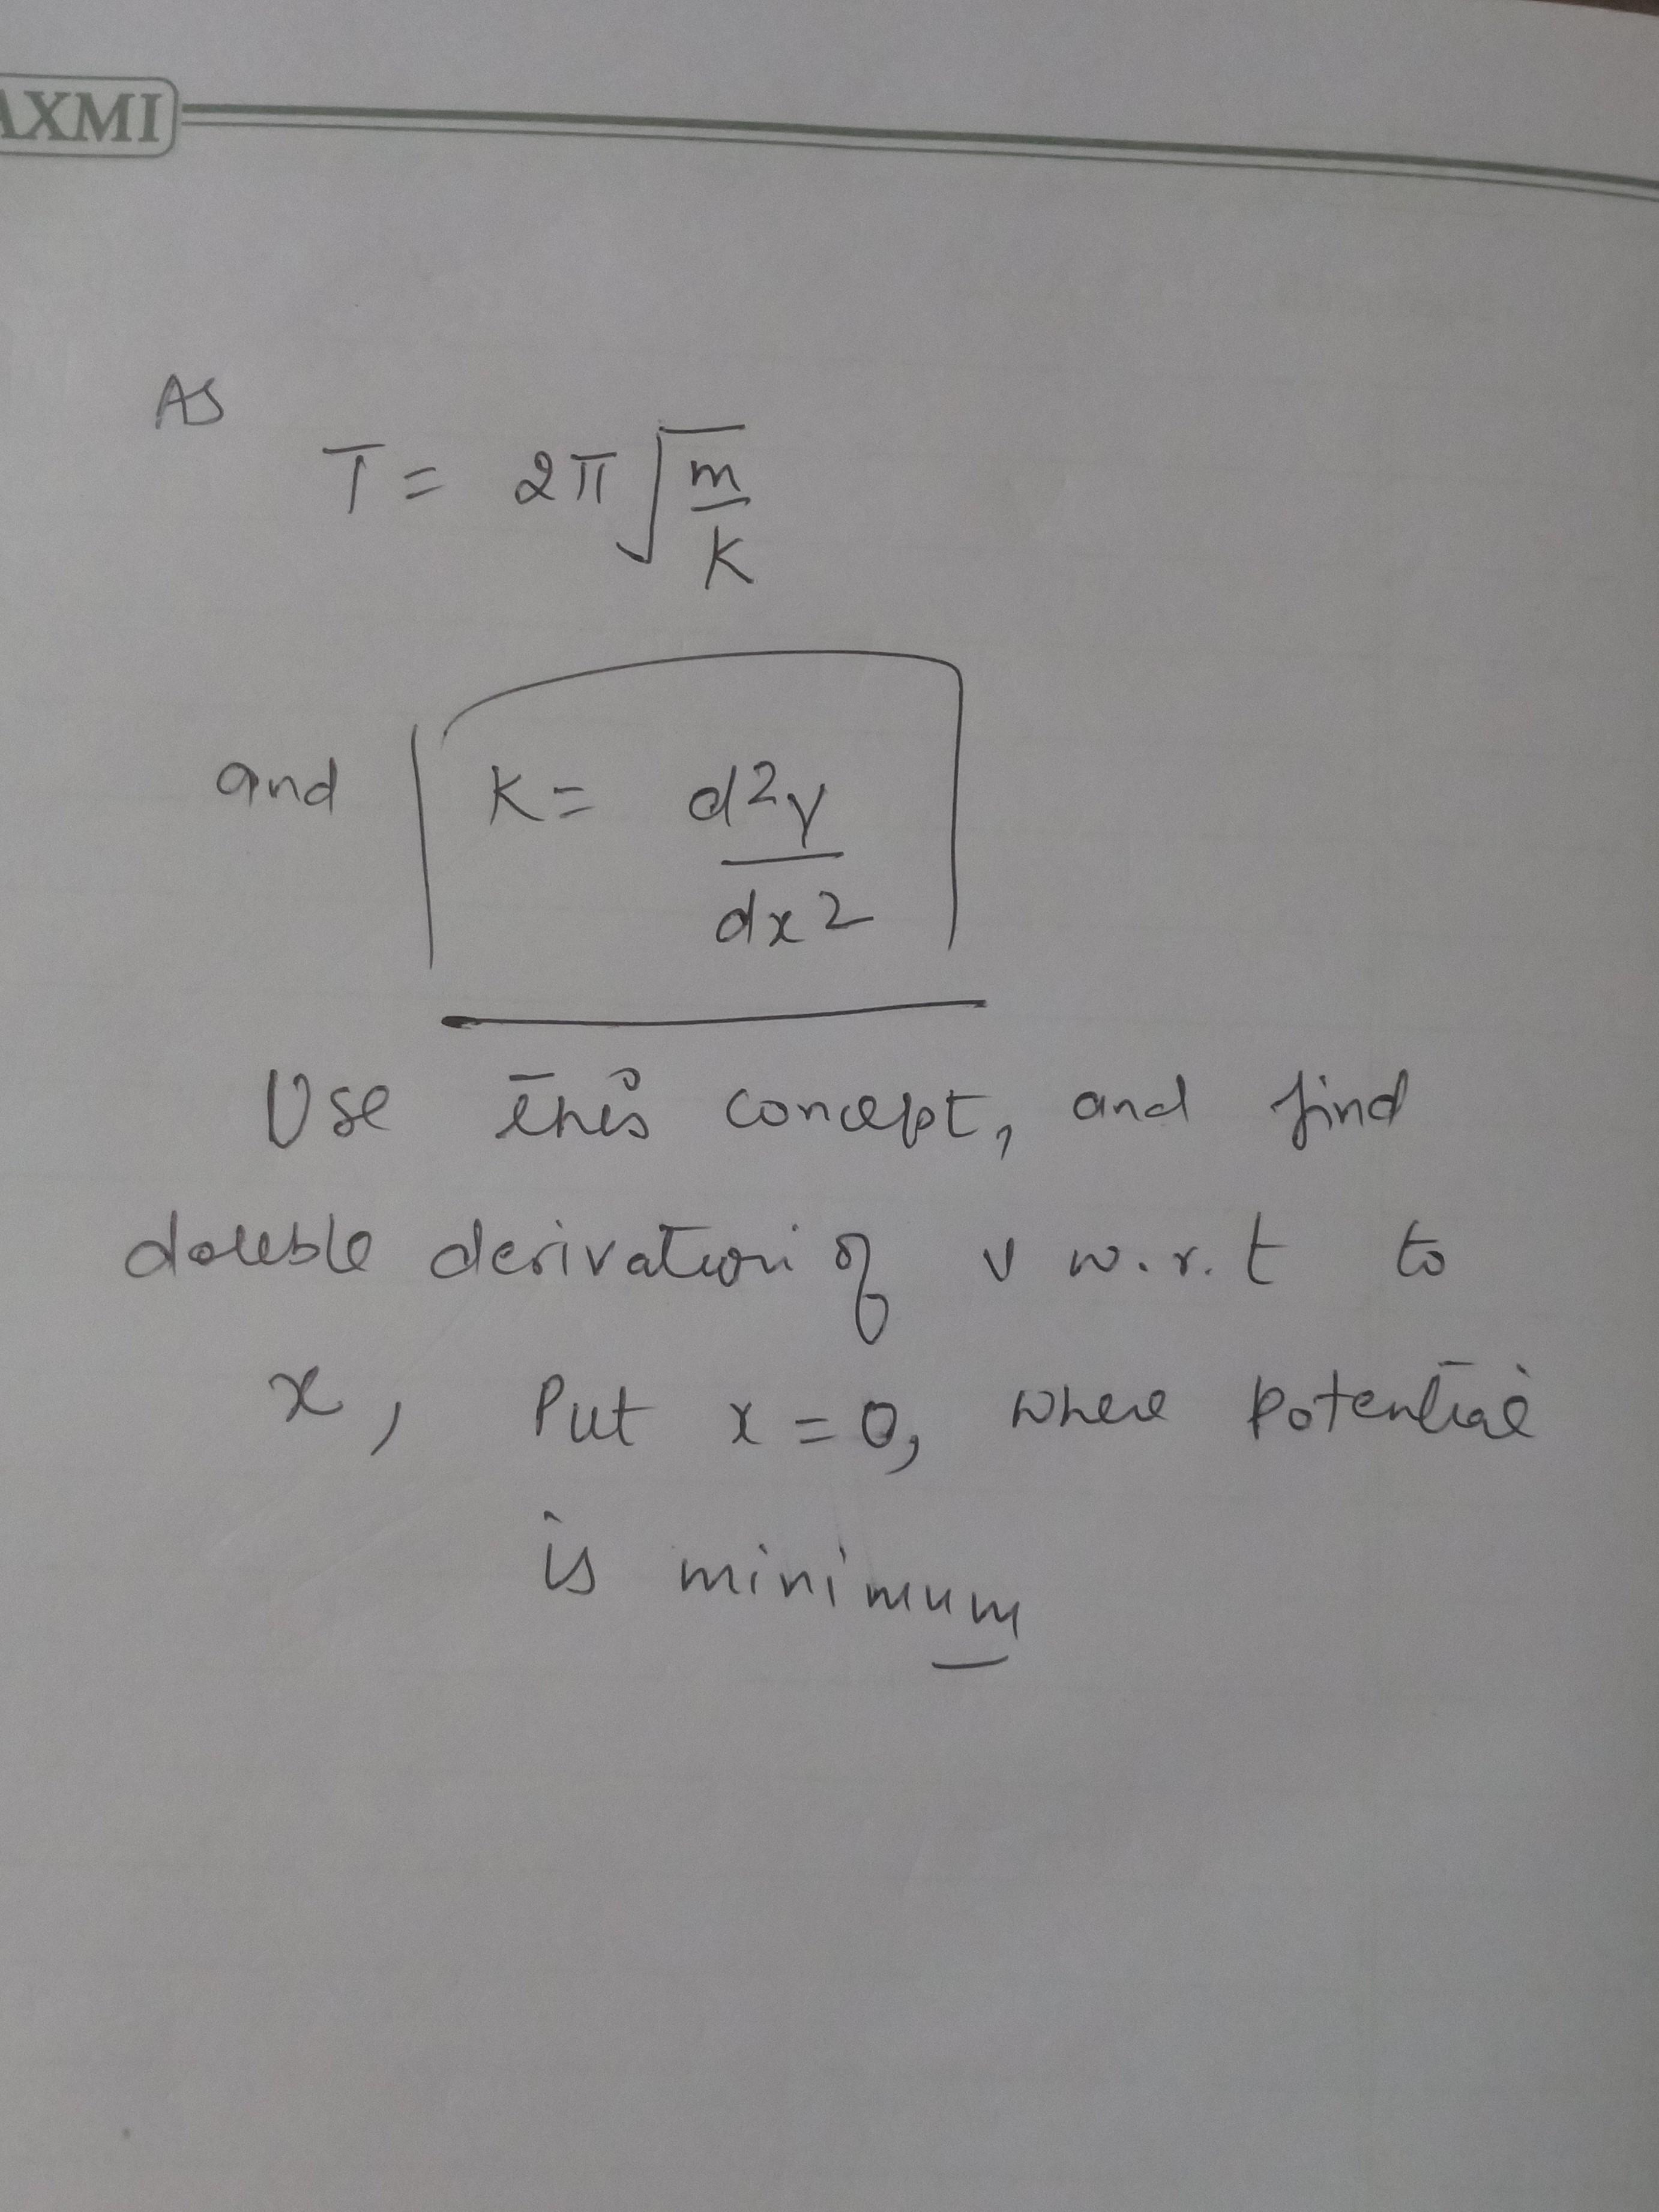 AXMI
As
T = 2π √(m/K)
and K = d²v/dx²
Use this concept, and find
double derivation of v w.r.t to
x, Put x = 0, where potential
is minimum